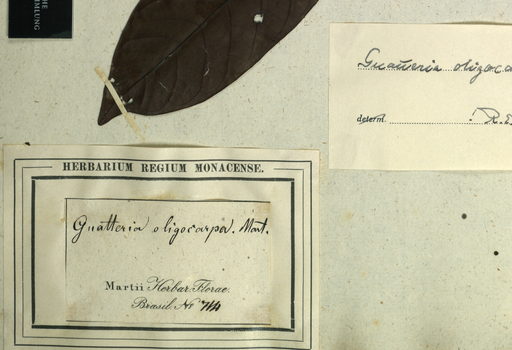 HE
MMLUNG
Guatteria oligoca
determ. R. E.
HERBARIUM REGIUM MONACENSE.
Guatteria oligocarpa. Mart.
Martii Herbar. Florae
Brasil. No